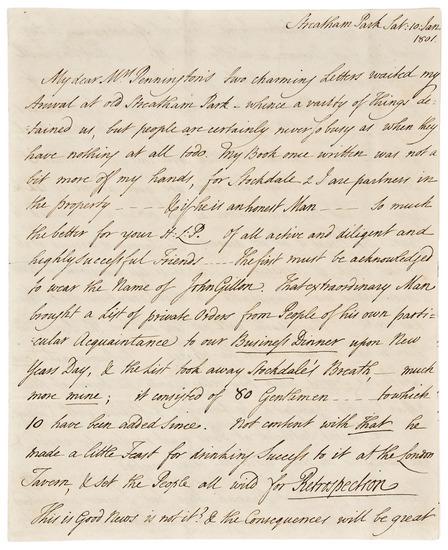 Streatham Park Sat: 10 Jan
1801.
My dear Mrs Pennington's two charming Letters waited my
Arrival at old Streatham Park – whence a varety of Things de-
tained us, but people are certainly never so busy as when they
have nothing at all to do. My Book once written was not a
bit more off my hands, for Stockdale & I are partners in
the Property — & if he is an honest Man — So much
the better for your H: L: P. Of all active and diligent and
highly successful Friends — The first must be acknowledged
to wear the Name of John Gillon. That extraordinary Man
brought a List of private Orders from People of his own parti-
cular Acquaintance to our Business Dinner upon New
Years Day, & the List took away Stockdale's Breath, – much
more mine; it consisted of 80 Gentlemen — to which
10 have been added Since. Not content with that he
made a little Feast for drinking Success to it at the London
Tavern, & set the People all wild for Retrospection
This is Good News is not it? & the Consequences will be great